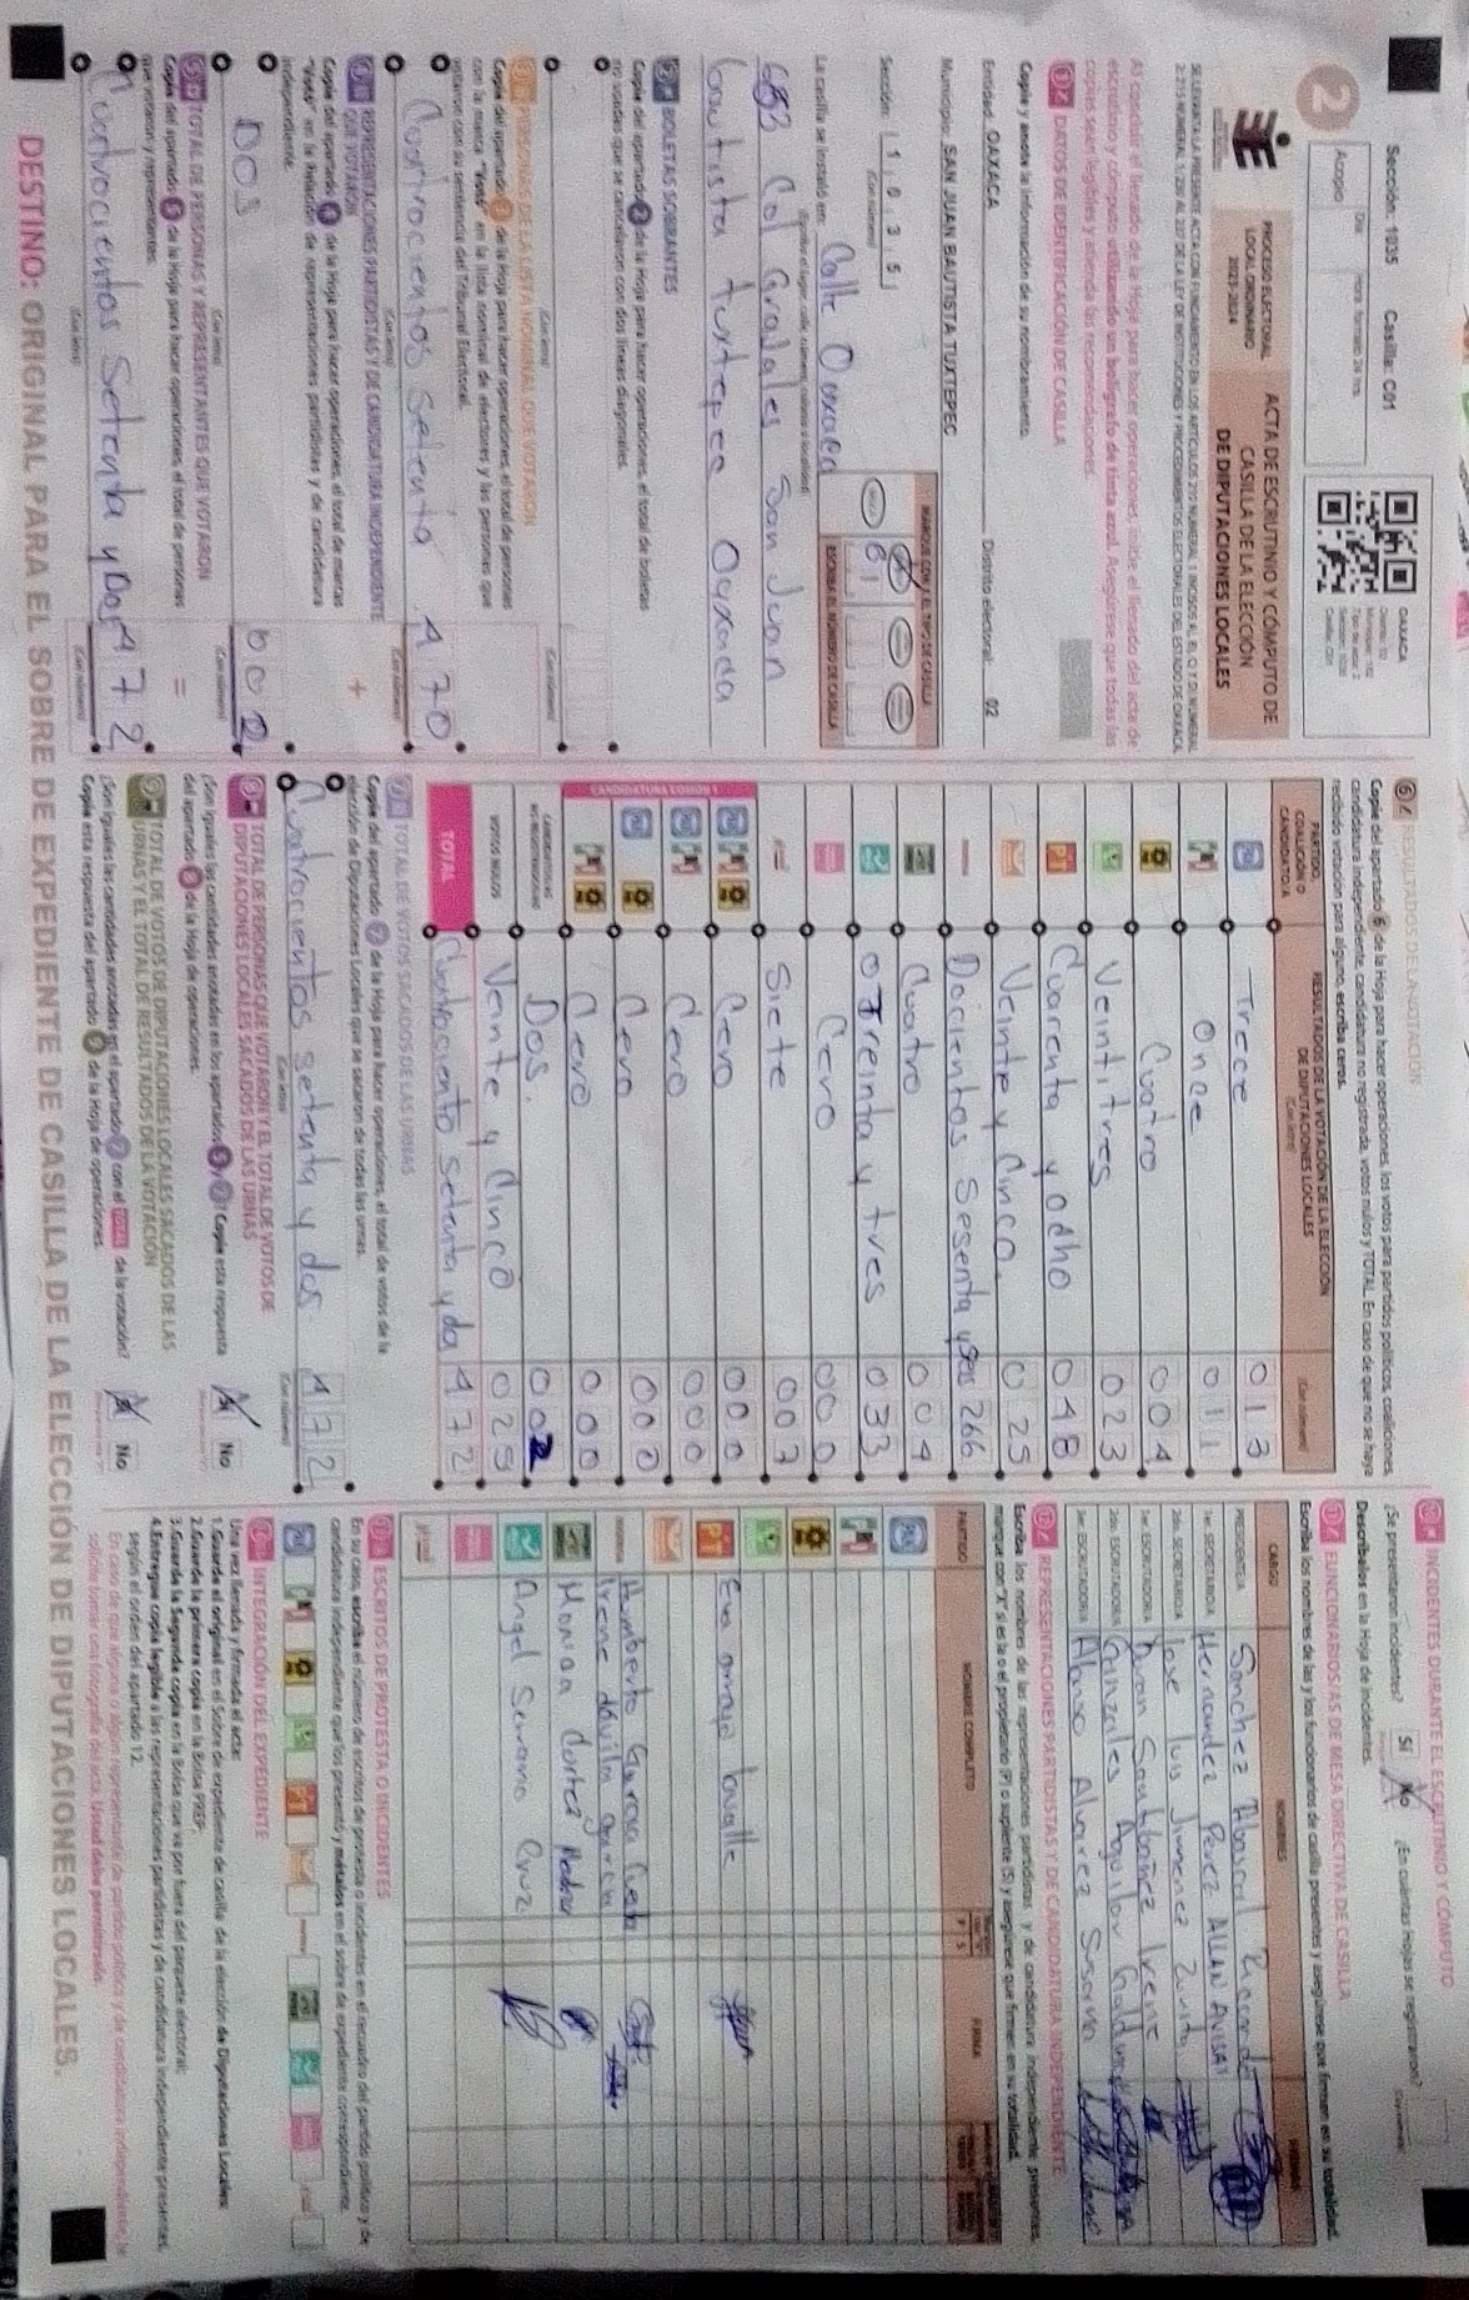 Sección: 1035 Casilla: C01
Acopio
Día Hora formato 24 hrs
OAXACA
2
PROCESO ELECTORAL
LOCAL ORDINARIO
2023-2024
ACTA DE ESCRUTINIO Y CÓMPUTO DE
CASILLA DE LA ELECCIÓN
DE DIPUTACIONES LOCALES
A) concluir el llenado de la Hoja para hacer operaciones, inicie el llenado del acta de
escrutinio y cómputo utilizando un bolígrafo de tinta azul. Asegúrese que todas las
copias sean legibles y atienda las recomendaciones.
1 DATOS DE IDENTIFICACIÓN DE CASILLA
Copie y anote la información de su nombramiento.
Entidad: OAXACA Distrito electoral: 02
Municipio: SAN JUAN BAUTISTA TUXTEPEC
Sección: 1 0 3 5
(Con número)
MARQUE CON X EL TIPO DE CASILLA
ESCRIBA EL NÚMERO DE CASILLA
La casilla se instaló en: Calle Oaxaca
683 Col Grajales San Juan
bautista tuxtepec Oaxaca
2 BOLETAS SOBRANTES
Copie del apartado 2 de la Hoja para hacer operaciones, el total de boletas
no usadas que se cancelaron con dos líneas diagonales.
(Con letra) (Con número)
3 PERSONAS DE LA LISTA NOMINAL QUE VOTARON
Copie del apartado 3 de la Hoja para hacer operaciones, el total de personas
con la marca "Votó" en la lista nominal de electores y las personas que
votaron con su sentencia del Tribunal Electoral.
Cuatrocientos Setenta 470
(Con letra) (Con número)
4 REPRESENTACIONES PARTIDISTAS Y DE CANDIDATURA INDEPENDIENTE
QUE VOTARON
Copie del apartado 4 de la Hoja para hacer operaciones, el total de marcas
"Votó" en la Relación de representaciones partidistas y de candidatura
independiente.
DOS 002
(Con letra) (Con número)
5 TOTAL DE PERSONAS Y REPRESENTANTES QUE VOTARON
Copie del apartado 5 de la Hoja para hacer operaciones, el total de personas
que votaron y representantes.
Cuatrocientos Setenta y Dos 472
(Con letra) (Con número)
6 RESULTADOS DE LA VOTACIÓN
Copie del apartado 6 de la Hoja para hacer operaciones, los votos para partidos políticos, coaliciones,
candidatura independiente, candidatura no registrada, votos nulos y TOTAL. En caso de que no se haya
recibido votación para alguno, escriba ceros.
PARTIDO,
COALICIÓN O
CANDIDATO/A
RESULTADOS DE LA VOTACIÓN DE LA ELECCIÓN
DE DIPUTACIONES LOCALES
(Con letra) (Con número)
PAN Trece 013
PRI Once 011
PRD Cuatro 004
Veintitres 023
PT Cuarenta y ocho 048
Veinte y Cinco. 025
morena Docientos Sesenta y seis 266
Cuatro 004
Treinta y tres 033
Cero 000
Siete 007
CANDIDATURA COMÚN 1
Cero 000
Cero 000
Cero 000
Cero 000
CANDIDATOS/AS
NO REGISTRADOS/AS Dos. 002
VOTOS NULOS Veinte y Cinco 025
TOTAL Cuatrociento setenta y dos 472
7 TOTAL DE VOTOS SACADOS DE LAS URNAS
Copie del apartado 7 de la Hoja para hacer operaciones, el total de votos de la
elección de Diputaciones Locales que se sacaron de todas las urnas.
Cuatrocientos setenta y dos 472
(Con letra) (Con número)
8 TOTAL DE PERSONAS QUE VOTARON Y EL TOTAL DE VOTOS DE
DIPUTACIONES LOCALES SACADOS DE LAS URNAS
¿Son iguales las cantidades anotadas en los apartados 5 y 7? Copie esta respuesta
del apartado 8 de la Hoja de operaciones.
Sí No
9 TOTAL DE VOTOS DE DIPUTACIONES LOCALES SACADOS DE LAS
URNAS Y EL TOTAL DE RESULTADOS DE LA VOTACIÓN
¿Son iguales las cantidades anotadas en el apartado 7 con el TOTAL de la votación?
Copie esta respuesta del apartado 9 de la Hoja de operaciones.
Sí No
10 INCIDENTES DURANTE EL ESCRUTINIO Y CÓMPUTO
¿Se presentaron incidentes? Sí No ¿En cuántas Hojas se registraron?
Descríbalos en la Hoja de incidentes.
11 FUNCIONARIOS/AS DE MESA DIRECTIVA DE CASILLA
Escriba los nombres de las y los funcionarios de casilla presentes y asegúrese que firmen en su totalidad.
CARGO NOMBRES FIRMAS
PRESIDENTE/A Sanchez Abascal Ricardo
1er. SECRETARIO/A Hernandez Perez
2do. SECRETARIO/A Jose luis Jimenez Zurita
1er. ESCRUTADOR/A Duran Santibañez Irene
2do. ESCRUTADOR/A Gonzales Aguilar
3er. ESCRUTADOR/A Alonso Alvarez Susana
12 REPRESENTACIONES PARTIDISTAS Y DE CANDIDATURA INDEPENDIENTE
Escriba los nombres de las representaciones partidistas y de candidatura independiente presentes,
marque con "X" si es la o el propietario (P) o suplente (S) y asegúrese que firmen en su totalidad.
PARTIDO NOMBRE COMPLETO P S FIRMA
PAN
PRI
PRD
PT Eva arroyo lavalle
morena Humberto Garcia
Irene dávila garcia
Monica Cortez
Angel Serrano Cruz
13 ESCRITOS DE PROTESTA O INCIDENTES
En su caso, escriba el número de escritos de protesta o incidentes en el recuadro del partido político y de
candidatura independiente que los presentó y métalos en el sobre de expediente correspondiente.
14 INTEGRACIÓN DEL EXPEDIENTE
Una vez llenada y firmada el acta:
1. Guarde el original en el Sobre de expediente de casilla de la elección de Diputaciones Locales;
2. Guarde la primera copia en la Bolsa PREP;
3. Guarde la Segunda copia en la Bolsa que va por fuera del paquete electoral;
4. Entregue copia legible a las representaciones partidistas y de candidatura independiente presentes,
según el orden del apartado 12.
En caso de que alguna o algún representante de partido político y de candidatura independiente le
solicite tomar una fotografía del acta, Usted debe permitírselo.
DESTINO: ORIGINAL PARA EL SOBRE DE EXPEDIENTE DE CASILLA DE LA ELECCIÓN DE DIPUTACIONES LOCALES.